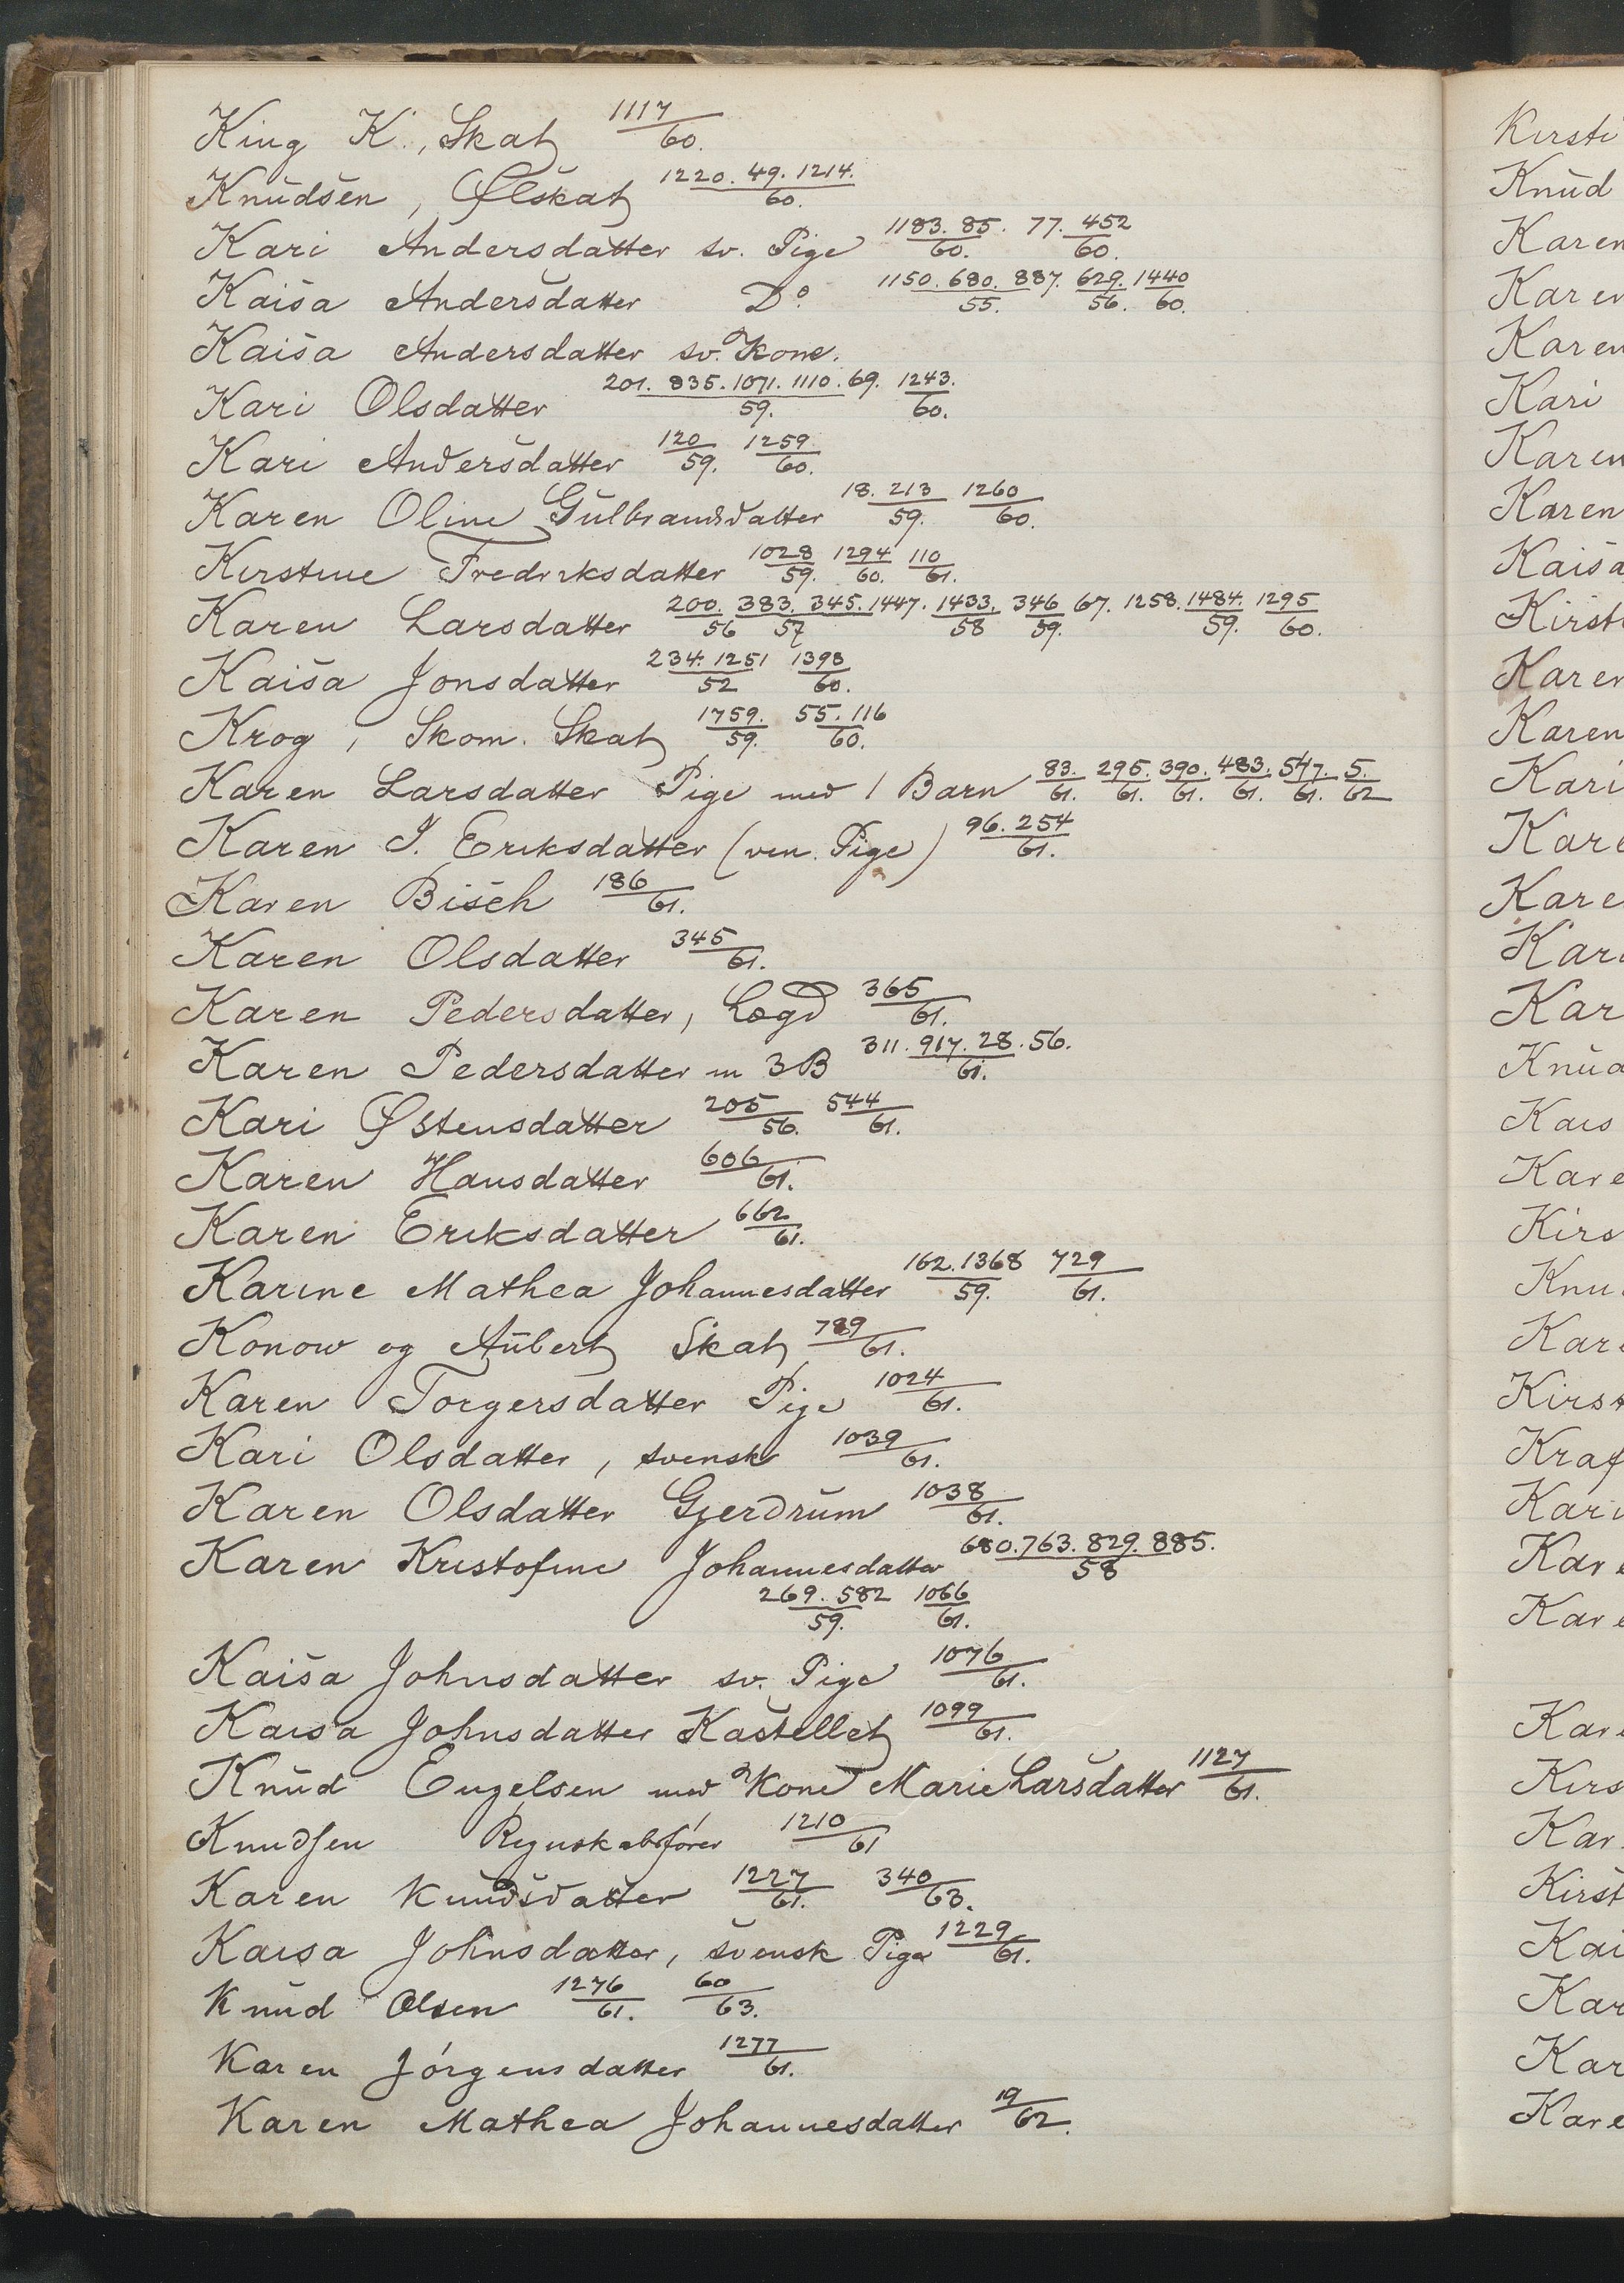 King K., Skat 1117/60.
Knudsen, Ølskat 1220. 49. 1214./60.
Kari Andersdatter sv. Pige 1183. 85./60. 77. 452/60.
Kaisa Andersdatter Do. 1150. 680. 887./55. 629./56. 1440/60.
Kaisa Andersdatter sv. Kone.
Kari Olsdatter 201. 835. 1071. 1110. 69./59. 1243./60.
Kari Andersdatter 120/59. 1259/60.
Karen Oline Gulbrandsdatter 18. 213/59. 1260/60.
Kirstine Fredriksdatter 1028/59. 1294/60. 110/61.
Karen Larsdatter 200./56 383. 345. 1447./57 1433./58 346/59. 67. 1258. 1484./59. 1295/60.
Kaisa Jonsdatter 234. 1251/52 1398/60.
Krog, Skom. Skat 1759./59. 55. 116/60.
Karen Larsdatter Pige med 1 Barn 83./61. 295./61. 390./61. 483./61. 547./61. 5./62
Karen J. Eriksdatter (ven. Pige) 96. 254/61.
Karen Bisch 186/61.
Karen Olsdatter 345/61.
Karen Pedersdatter, Lægd 365/61.
Karen Pedersdatter m 3 B 311. 917. 28. 56./61.
Kari Østensdatter 205/56. 544/61.
Karen Hansdatter 606/61.
Karen Eriksdatter 662/61.
Karine Mathea Johannesdatter 162. 1368/59. 729/61.
Konow og Aubert Skat 789/61.
Karen Torgersdatter Pige 1024/61.
Kari Olsdatter, svensk 1039/61.
Karen Olsdatter Gjerdrum 1038/61.
Karen Kristofine Johannesdatter 680. 763. 829. 885./58
269. 582/59. 1066/61.
Kaisa Johnsdatter sv. Pige 1076/61.
Kaisa Johnsdatter Kastellet 1099/61.
Knud Engelsen med Kone Marie Larsdatter 1127/61.
Knudsen Regnskabsfører 1210/61
Karen Knudsdatter 1227/61. 340/63.
Kaisa Johnsdatter, svensk Pige 1229/61.
Knud Olsen 1276/61. 60/63.
Karen Jörgensdatter 1277/61.
Karen Mathea Johannesdatter 19/62.
Kirsti
Knud
Karen
Karen
Karen
Kari
Karen
Karen
Kaisa
Kirsti
Karen
Karen
Kari
Kare
Kare
Kar
Kar
Knud
Kais
Kare
Kirs
Knu
Kar
Kirst
Kraf
Kari
Kare
Kare
Kare
Kirs
Kar
Kirst
Kai
Kar
Kar
Kare